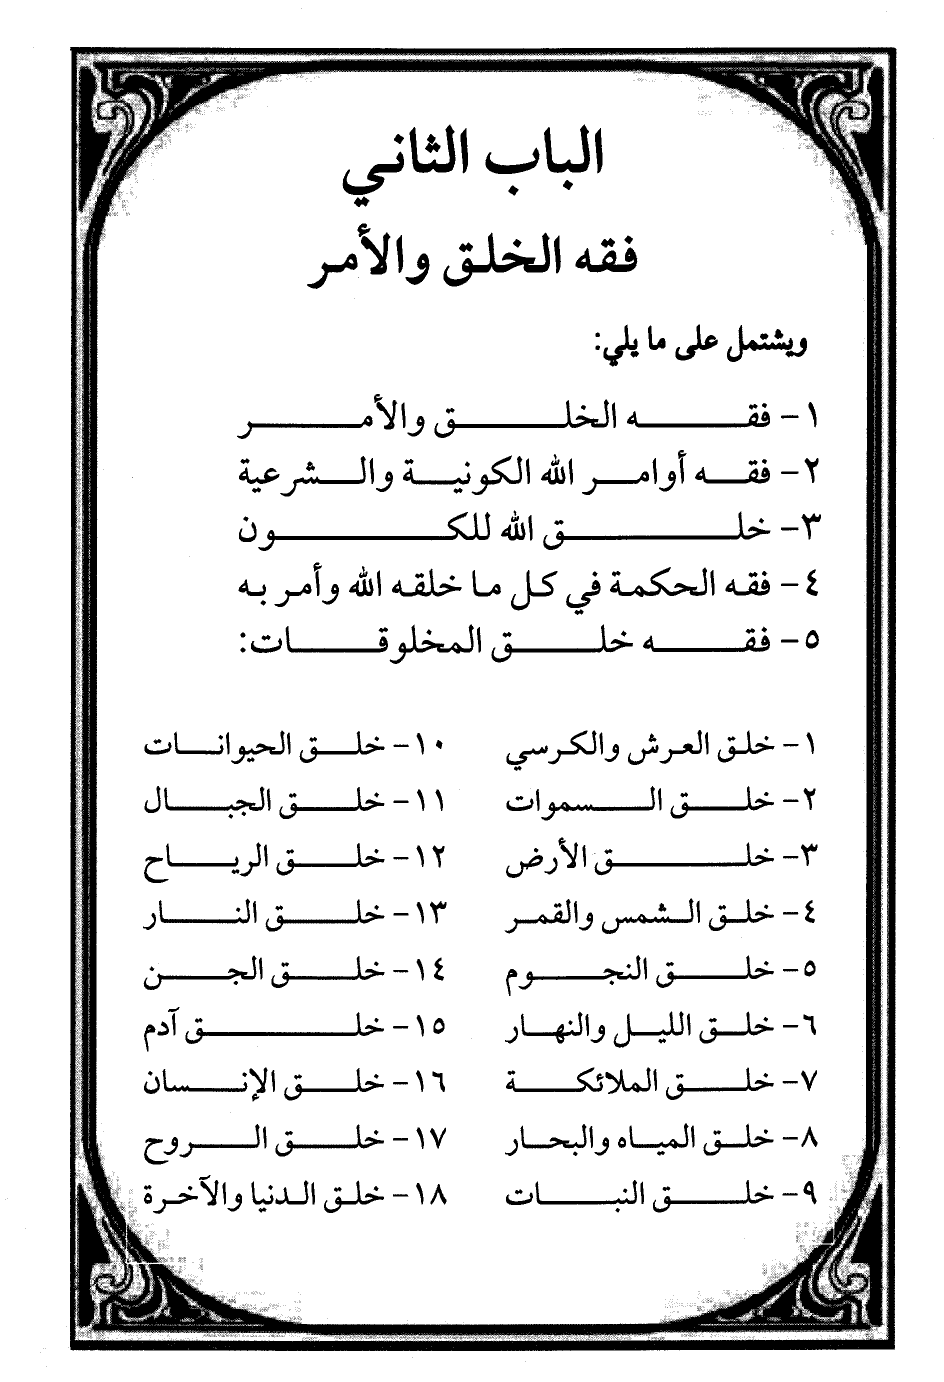 الباب الثاني
فقه الخلق والأمر
ويشتمل على ما يلي:
١- فقه الخلق والأمر
٢- فقه أوامر الله الكونية والشرعية
٣- خلق الله للكون
٤- فقه الحكمة في كل ما خلقه الله وأمر به
٥- فقه خلق المخلوقات:
١- خلق العرش والكرسي
٢- خلق السموات
٣- خلق الأرض
٤- خلق الشمس والقمر
٥- خلق النجوم
٦- خلق الليل والنهار
٧- خلق الملائكة
٨- خلق المياه والبحار
٩- خلق النبات
١٠- خلق الحيوانات
١١- خلق الجبال
١٢- خلق الرياح
١٣- خلق النار
١٤- خلق الجن
١٥- خلق آدم
١٦- خلق الإنسان
١٧- خلق الروح
١٨- خلق الدنيا والآخرة